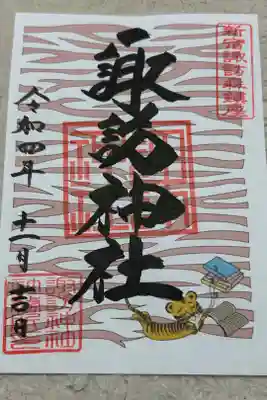 新宿諏訪森鎮座
諏訪神社
令和四年 十一月 吉日